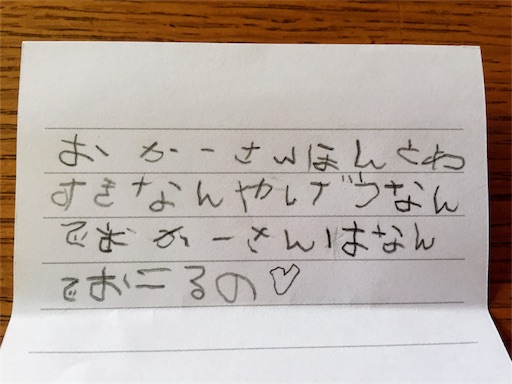 おかーさんほんとわ
すきなんやしげつなん
でおかーさんはなん
でおこるの♡